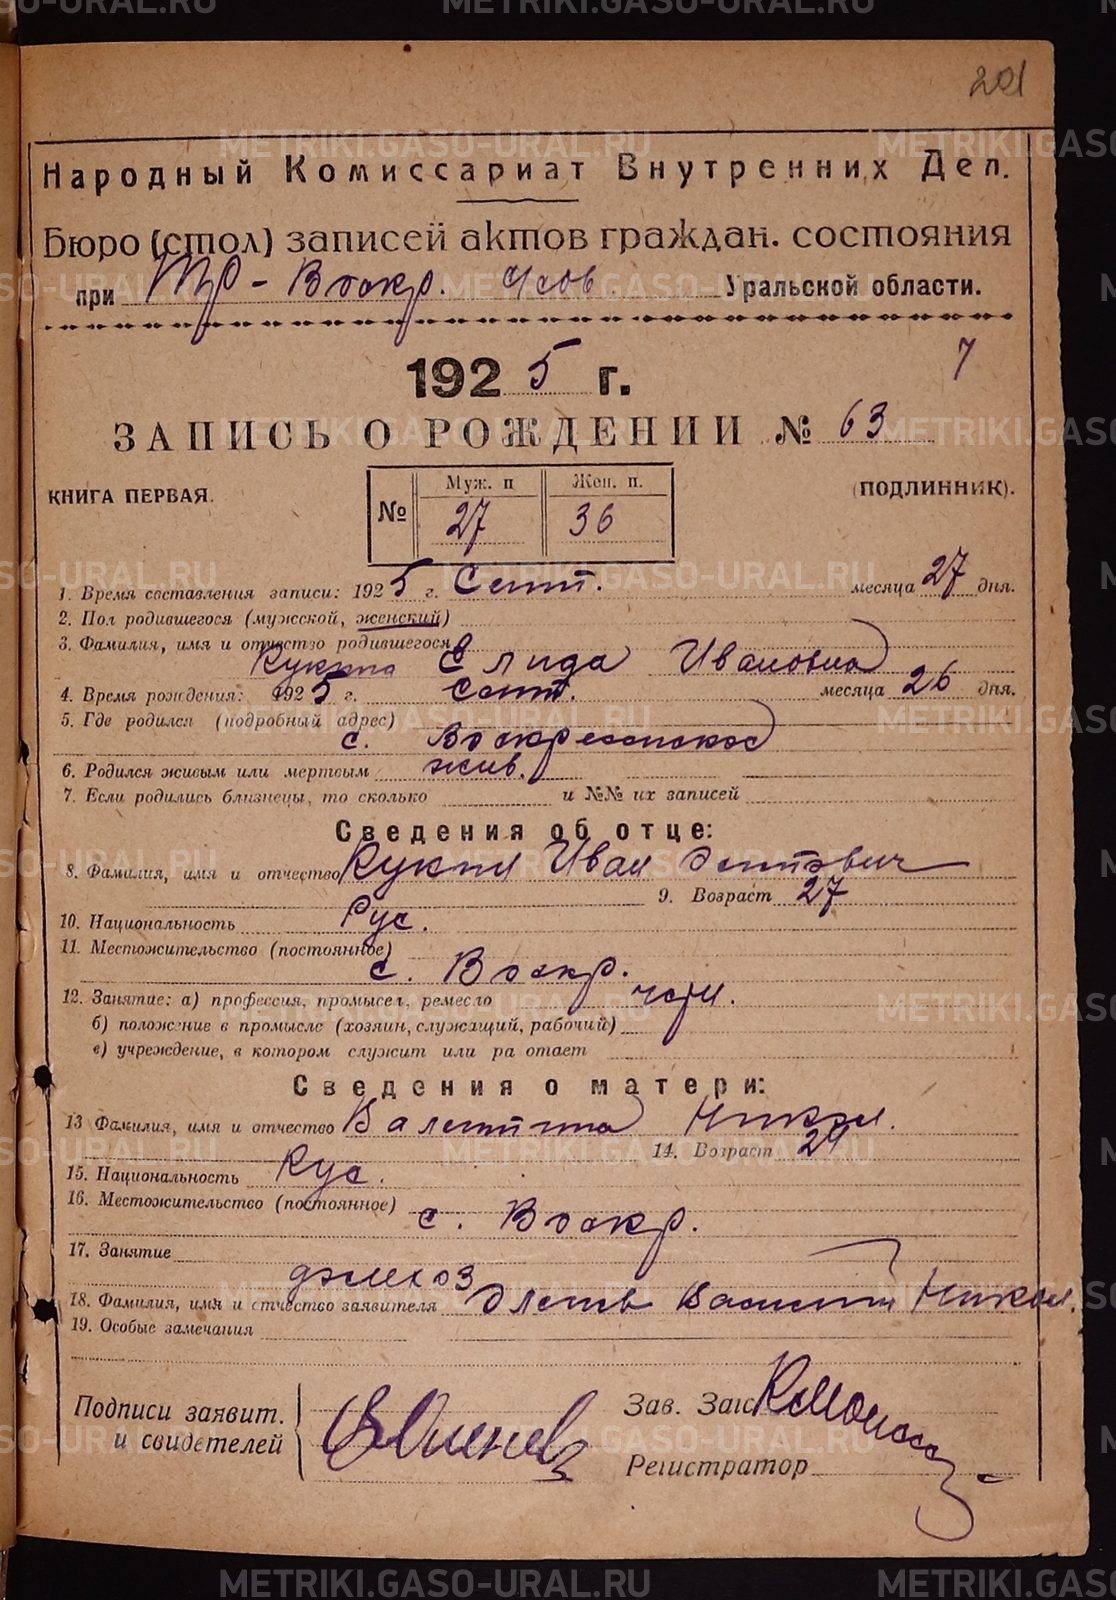 201
Народный Комиссариат Внутренних Дел.
Бюро (стол) записей актов граждан. состояния
при Тр-Воскр. Уральской области.
7
1925 г.
ЗАПИСЬ О РОЖДЕНИИ № 63
КНИГА ПЕРВАЯ. (ПОДЛИННИК).
№ Муж. п Жен. п.
27 36
1. Время составления записи: 1925 г. Сент. месяца 27 дня.
2. Пол родившегося (мужской, женский)
3. Фамилия, имя и отчество родившегося
Елида Ивановна
4. Время рождения: 1925 г. Сент. месяца 26 дня.
5. Где родился (подробный адрес)
с. Воскресенское
6. Родился живым или мертвым жив.
7. Если родились близнецы, то сколько и №№ их записей
Сведения об отце:
8. Фамилия, имя и отчество Иван
9. Возраст 27
10. Национальность Рус.
11. Местожительство (постоянное)
с. Воскр.
12. Занятие: а) профессия, промысел, ремесло
б) положение в промысле (хозяин, служащий, рабочий)
в) учреждение, в котором служит или ра отает
Сведения о матери:
13 Фамилия, имя и отчество Валентина Никол.
14. Возраст
15. Национальность Рус.
16. Местожительство (постоянное)
с. Воскр.
17. Занятие
домхоз
18. Фамилия, имя и отчество заявителя Никол.
19. Особые замечания
Подписи заявит. Зав. Загс
и свидетелей
Регистратор
METRIKI.GASO-URAL.RU